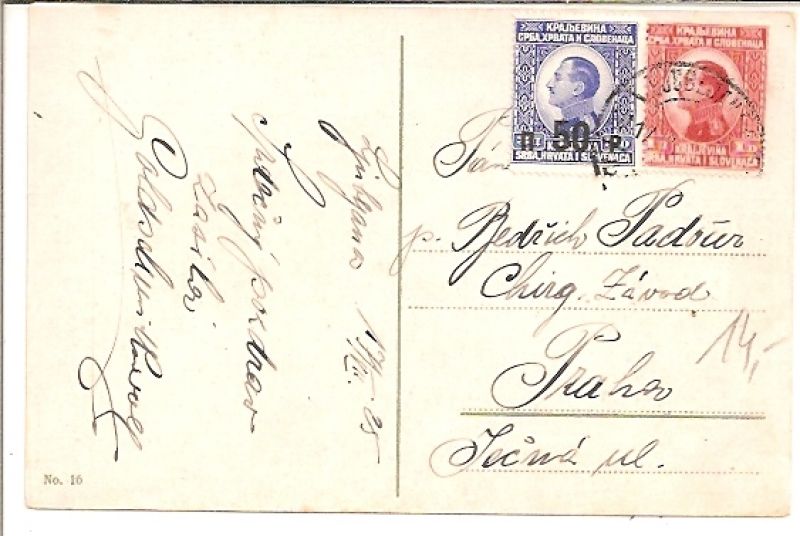 КРАЉЕВИНА
СРБА, ХРВАТА И СЛОВЕНАЦА
П 50 P
KRALJEVINA
SRBA, HRVATA I SLOVENACA
КРАЉЕВИНА
СРБА, ХРВАТА И СЛОВЕНАЦА
1 D
KRALJEVINA
SRBA, HRVATA I SLOVENACA
Pán
p. Bedřich Padour
Chirg. Závod
Praha
Ječná ul.
14,-
Ljubljana
Srdečný pozdrav
zasílá
No. 16